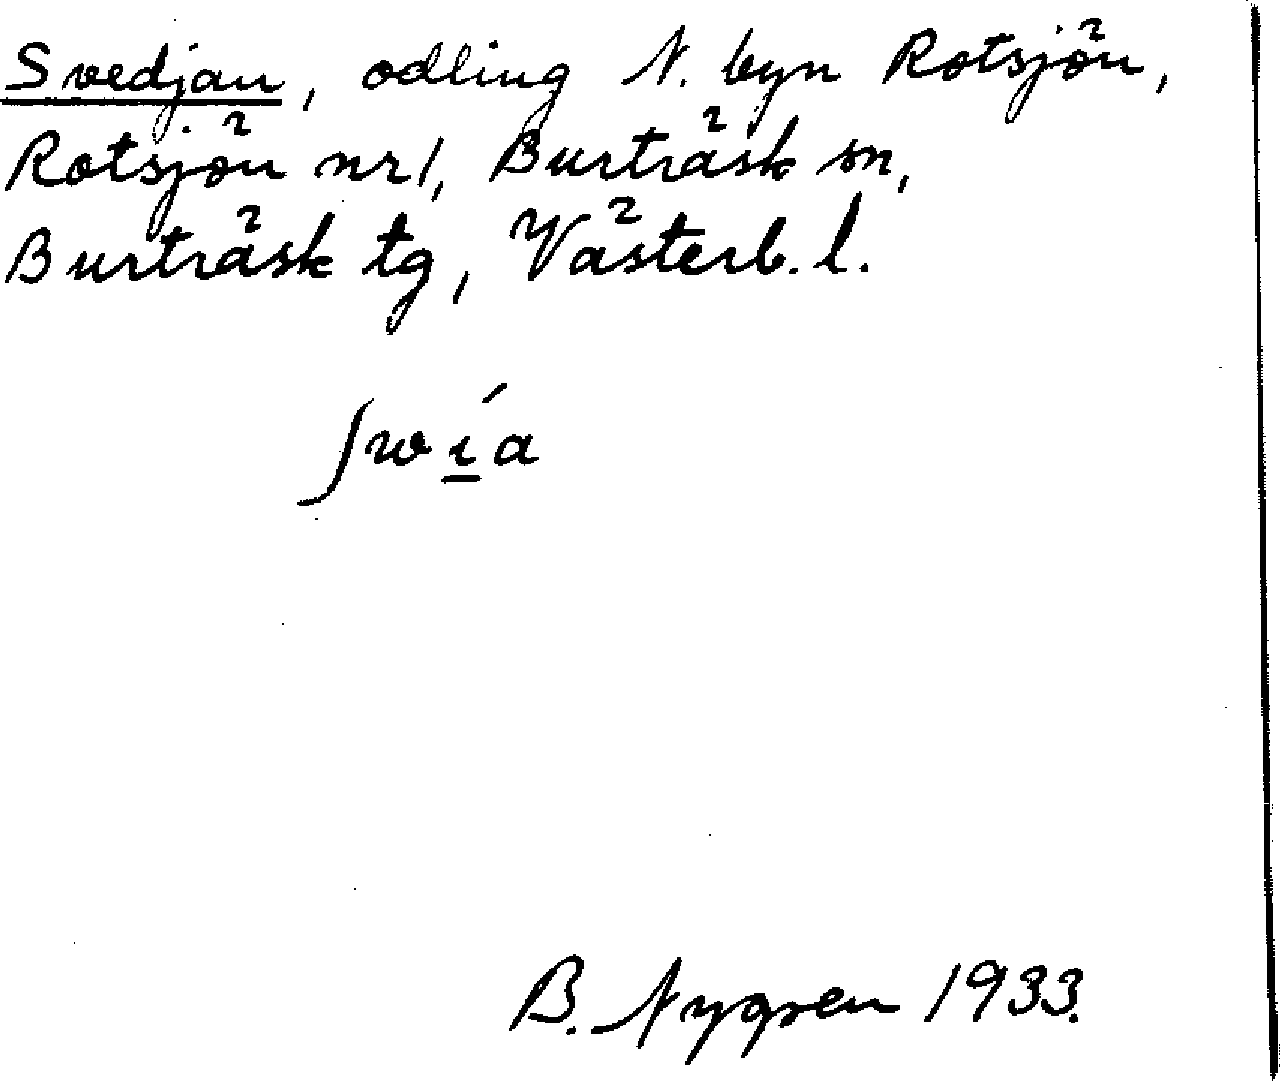 Svedjan, odling N. byn Rotsjön,
Rotsjön nr 1, Burträsk sn,
Burträsk tg, Västerb. l.
ʃwı̲́a
B. Nygren 1933.